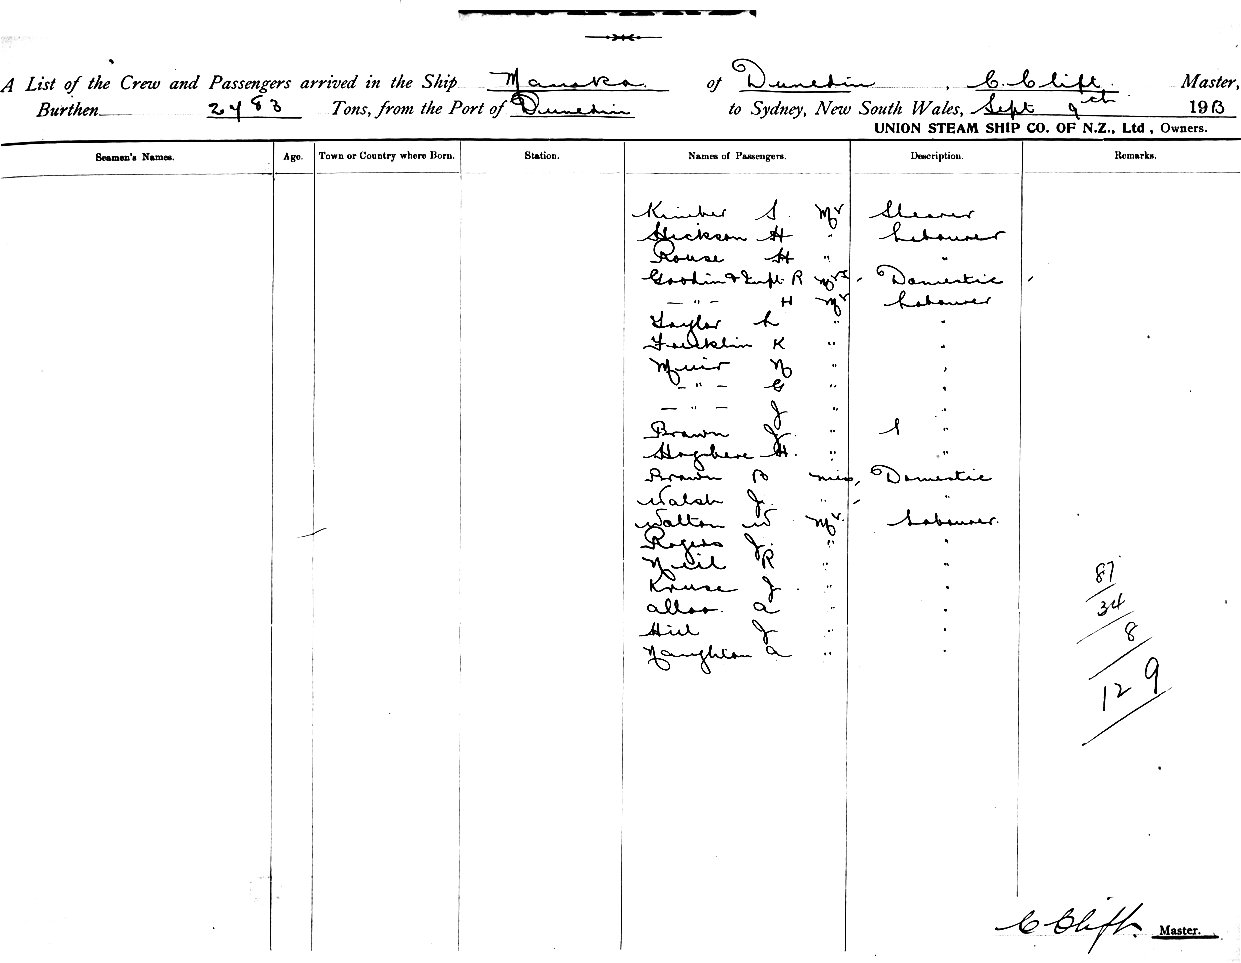 A List of the Crew and Passengers arrived in the Ship Manuka of Dunedin, C Clift Master,
Burthen 2483 Tons, from the Port of Dunedin to Sydney, New South Wales, Sept 9th 1913
UNION STEAM SHIP CO. OF N.Z., Ltd, Owners.
Seamen's Names. Age. Town or Country where Born. Station. Names of Passengers. Description. Remarks.
Kimber S. Mr Shearer
Hickson H " Labourer
Rouse H " "
Goodin & Inft R Mrs Domestic
— " — H Mr Labourer
Taylor L " "
Franklin K " "
Muir N " "
— " — G " "
— " — J " "
Brown J. " "
H. " "
Brown B Miss, Domestic
Walsh J. " "
Walton W Mr. Labourer.
Rogers J. " "
Neil R " "
Kruse J " "
Alloo. A " "
Hill J " "
Naughton A " "
87
34
8
129
C Clift. Master.